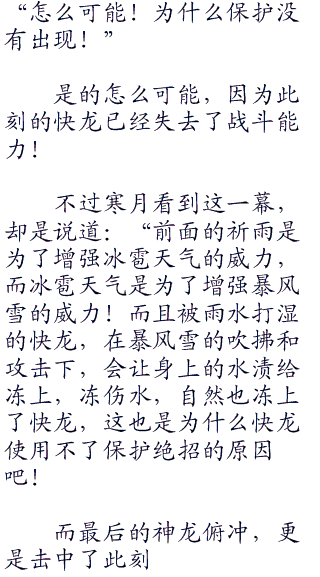 “怎么可能！为什么保护没
有出现！”
是的怎么可能，因为此
刻的快龙已经失去了战斗能
力！
不过寒月看到这一幕，
却是说道：“前面的祈雨是
为了增强冰雹天气的威力，
而冰雹天气是为了增强暴风
雪的威力！而且被雨水打湿
的快龙，在暴风雪的吹拂和
攻击下，会让身上的水渍给
冻上，冻伤水，自然也冻上
了快龙，这也是为什么快龙
使用不了保护绝招的原因
吧！
而最后的神龙俯冲，更
是击中了此刻